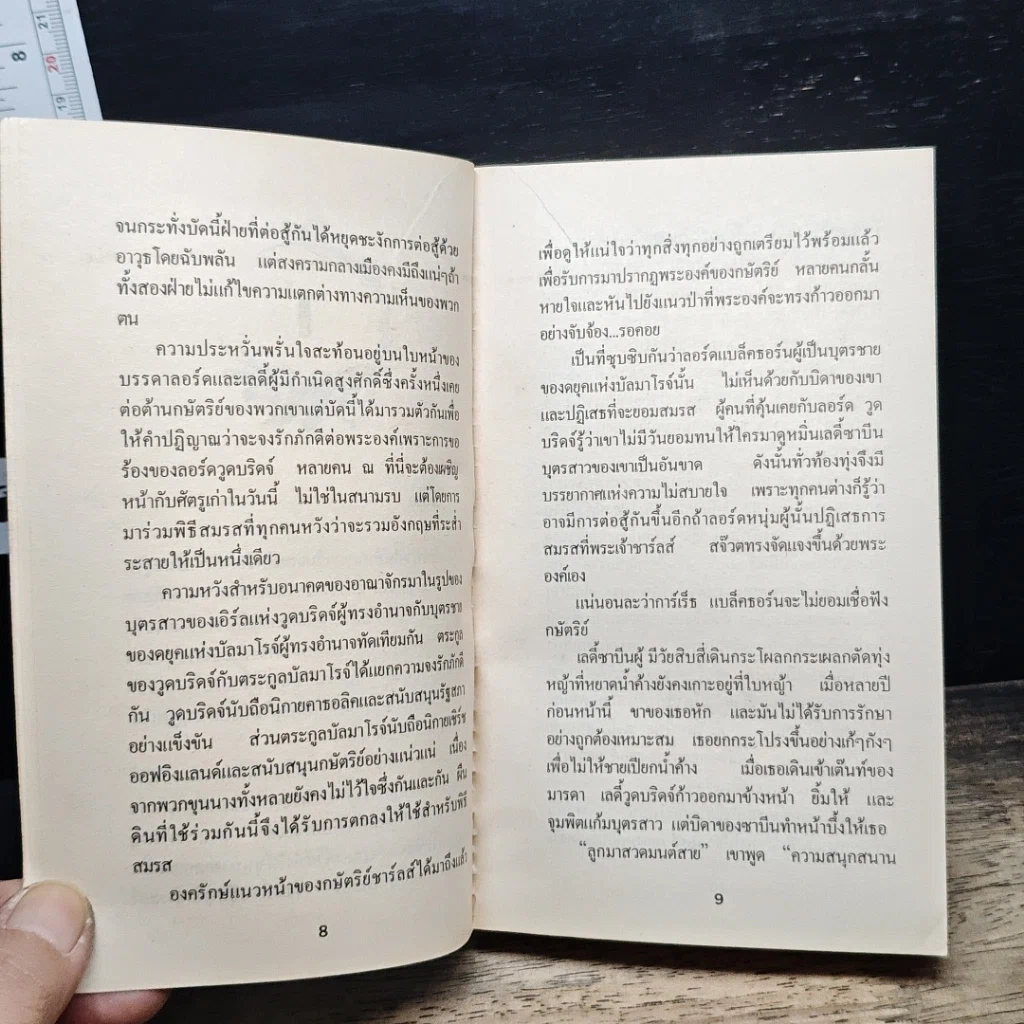 8
21
20
19
จนกระทั่งบัดนี้ฝ่ายที่ต่อสู้กันได้หยุดชะงักการต่อสู้ด้วย
อาวุธโดยฉับพลัน แต่สงครามกลางเมืองคงมีถึงแน่ๆถ้า
ทั้งสองฝ่ายไม่แก้ไขความแตกต่างทางความเห็นของพวก
ตน
ความประหวั่นพรั่นใจสะท้อนอยู่บนใบหน้าของ
บรรดาลอร์ดและเลดี้ผู้มีกำเนิดสูงศักดิ์ซึ่งครั้งหนึ่งเคย
ต่อต้านกษัตริย์ของพวกเขาแต่บัดนี้ได้มารวมตัวกันเพื่อ
ให้คำปฏิญาณว่าจะจงรักภักดีต่อพระองค์เพราะการขอ
ร้องของลอร์ดวูดบริดจ์ หลายคน ณ ที่นี่จะต้องเผชิญ
หน้ากับศัตรูเก่าในวันนี้ ไม่ใช่ในสนามรบ แต่โดยการ
มาร่วมพิธีสมรสที่ทุกคนหวังว่าจะรวมอังกฤษที่ระส่ำ
ระสายให้เป็นหนึ่งเดียว
ความหวังสำหรับอนาคตของอาณาจักรมาในรูปของ
บุตรสาวของเอิร์ลแห่งวูดบริดจ์ผู้ทรงอำนาจกับบุตรชาย
ของดยุคแห่งบัลมาโรจ์ผู้ทรงอำนาจทัดเทียมกัน ตระกูล
ของวูดบริดจ์กับตระกูลบัลมาโรจ์ได้แยกความจงรักภักดี
กัน วูดบริดจ์นับถือนิกายคาธอลิคและสนับสนุนรัฐสภา
อย่างแข็งขัน ส่วนตระกูลบัลมาโรจ์นับถือนิกายเชิร์ช
ออฟอิงแลนด์และสนับสนุนกษัตริย์อย่างแน่วแน่ เนื่อง
จากพวกขุนนางทั้งหลายยังคงไม่ไว้ใจซึ่งกันและกัน ผืน
ดินที่ใช้ร่วมกันนี้จึงได้รับการตกลงให้ใช้สำหรับพิธี
สมรส
องครักษ์แนวหน้าของกษัตริย์ชาร์ลส์ได้มาถึงแล้ว
8
เพื่อดูให้แน่ใจว่าทุกสิ่งทุกอย่างถูกเตรียมไว้พร้อมแล้ว
เพื่อรับการมาปรากฏพระองค์ของกษัตริย์ หลายคนกลั้น
หายใจและหันไปยังแนวป่าที่พระองค์จะทรงก้าวออกมา
อย่างจับจ้อง...รอคอย
เป็นที่ซุบซิบกันว่าลอร์ดแบล็คธอร์นผู้เป็นบุตรชาย
ของดยุคแห่งบัลมาโรจ์นั้น ไม่เห็นด้วยกับบิดาของเขา
และปฏิเสธที่จะยอมสมรส ผู้คนที่คุ้นเคยกับลอร์ด วูด
บริดจ์รู้ว่าเขาไม่มีวันยอมทนให้ใครมาดูหมิ่นเลดี้ซาบีน
บุตรสาวของเขาเป็นอันขาด ดังนั้นทั่วท้องทุ่งจึงมี
บรรยากาศแห่งความไม่สบายใจ เพราะทุกคนต่างก็รู้ว่า
อาจมีการต่อสู้กันขึ้นอีกถ้าลอร์ดหนุ่มผู้นั้นปฏิเสธการ
สมรสที่พระเจ้าชาร์ลส์ สจ๊วตทรงจัดแจงขึ้นด้วยพระ
องค์เอง
แน่นอนละว่าการ์เร็ธ แบล็คธอร์นจะไม่ยอมเชื่อฟัง
กษัตริย์
เลดี้ซาบีนผู้ มีวัยสิบสี่เดินกระโผลกกระเผลกตัดทุ่ง
หญ้าที่หยาดน้ำค้างยังคงเกาะอยู่ที่ใบหญ้า เมื่อหลายปี
ก่อนหน้านี้ ขาของเธอหัก และมันไม่ได้รับการรักษา
อย่างถูกต้องเหมาะสม เธอยกกระโปรงขึ้นอย่างเก้ๆกังๆ
เพื่อไม่ให้ชายเปียกน้ำค้าง เมื่อเธอเดินเข้าเต๊นท์ของ
มารดา เลดี้วูดบริดจ์ก้าวออกมาข้างหน้า ยิ้มให้ และ
จุมพิตแก้มบุตรสาว แต่บิดาของซาบีนทำหน้าบึ้งให้เธอ
“ลูกมาสวดมนต์สาย” เขาพูด “ความสนุกสนาน
9